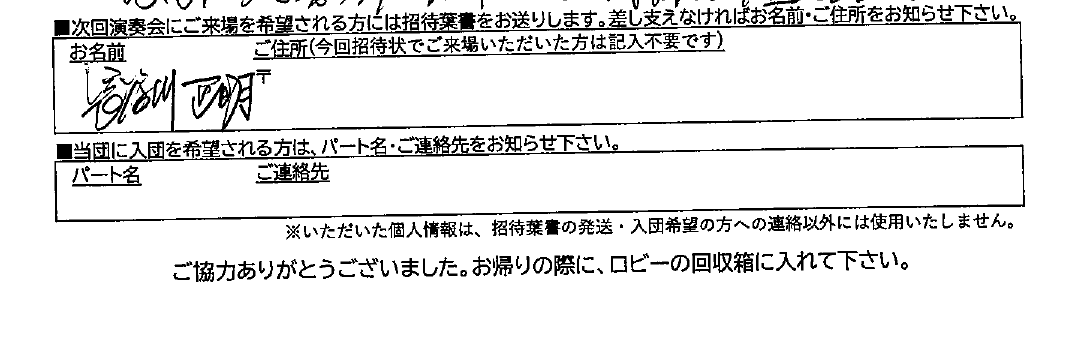 ■次回演奏会にご来場を希望される方には招待葉書をお送りします。差し支えなければお名前・ご住所をお知らせ下さい。
お名前 ご住所(今回招待状でご来場いただいた方は記入不要です)
長谷川 正明 〒
■当団に入団を希望される方は、パート名・ご連絡先をお知らせ下さい。
パート名 ご連絡先
※いただいた個人情報は、招待葉書の発送・入団希望の方への連絡以外には使用いたしません。
ご協力ありがとうございました。お帰りの際に、ロビーの回収箱に入れて下さい。